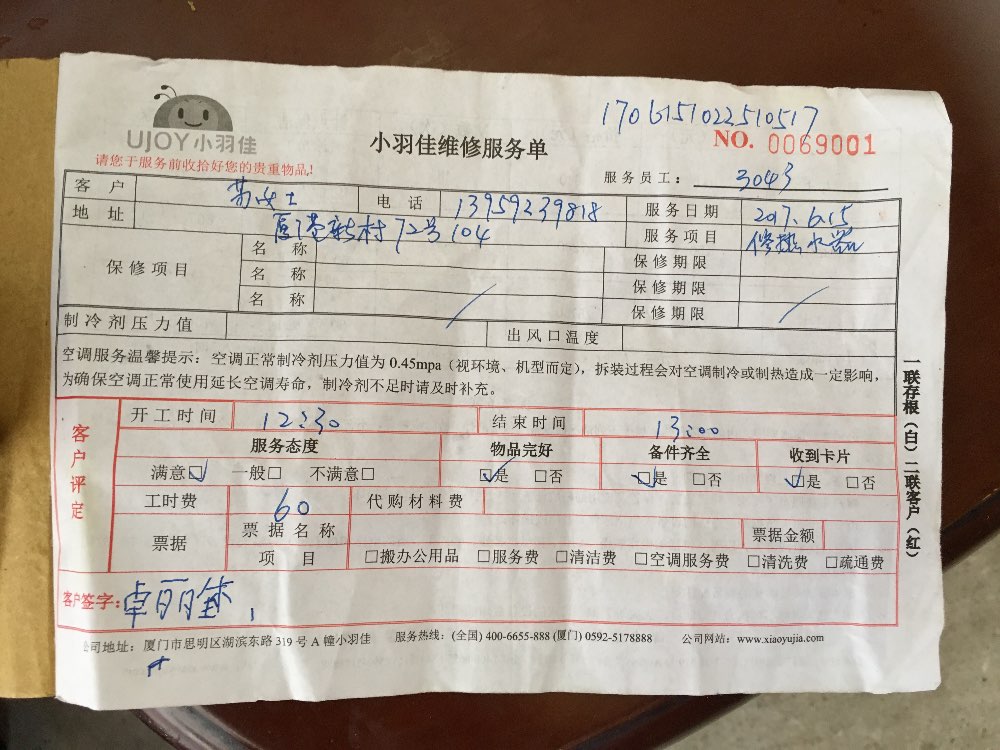 1706151022510517
UJOY小羽佳
小羽佳维修服务单
NO. 0069001
请您于服务前收拾好您的贵重物品!
服务员工: 3043
客户 女士 电话 13959239818 服务日期 2017.6.15
地址 厦港新村72号104 服务项目 修热水器
保修项目 名称 保修期限
名称 保修期限
名称 保修期限
制冷剂压力值 出风口温度
空调服务温馨提示:空调正常制冷剂压力值为0.45mpa(视环境、机型而定),拆装过程会对空调制冷或制热造成一定影响,
为确保空调正常使用延长空调寿命,制冷剂不足时请及时补充。
客户评定
开工时间 12:30 结束时间 13:00
服务态度 物品完好 备件齐全 收到卡片
满意☑ 一般□ 不满意□ ☑是 □否 ☑是 □否 ☑是 □否
工时费 60 代购材料费
票据 票据名称 票据金额
项目 □搬办公用品 □服务费 □清洁费 □空调服务费 □清洗费 □疏通费
客户签字:卓丽
公司地址:厦门市思明区湖滨东路319号A幢小羽佳 服务热线:(全国)400-6655-888(厦门)0592-5178888 公司网站:www.xiaoyujia.com
一联存根(白)二联客户(红)